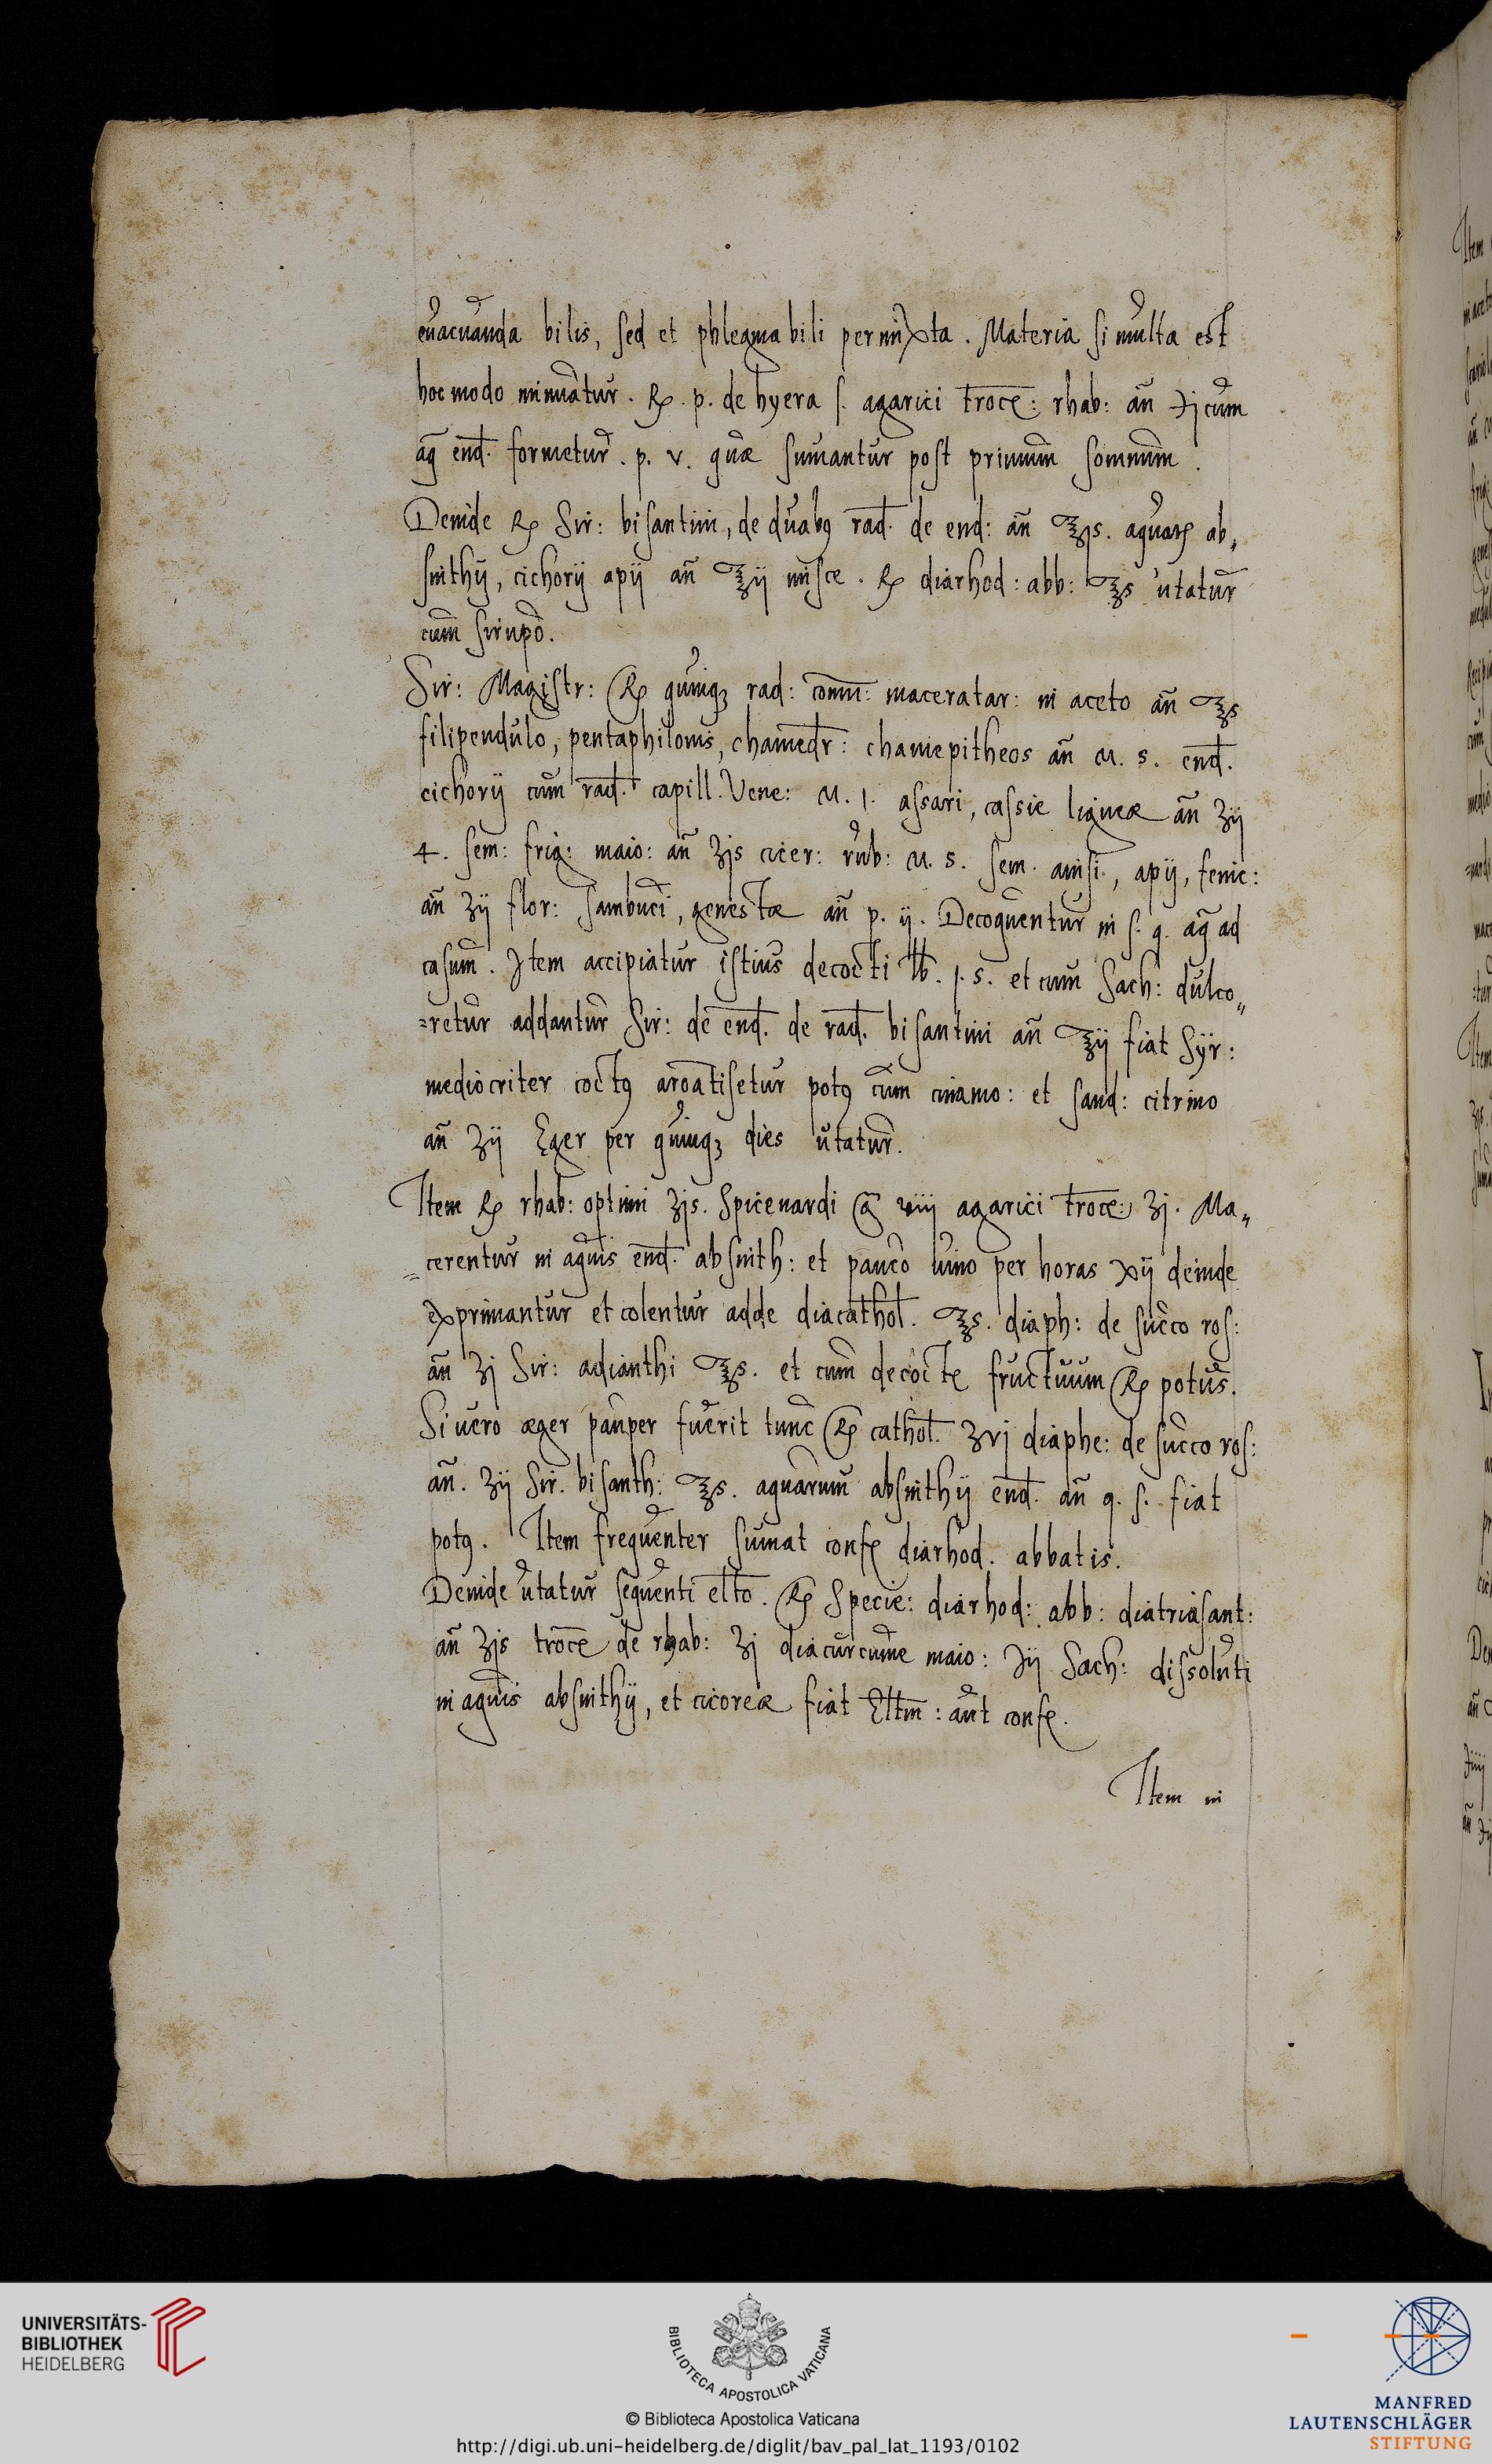 evacuanda bilis, sed et phlegma bili permixta. Materia si multa est
hoc modo minuatur. ℞. p. de hyera s. agarici troce: rhab: an̄ ℈j cum
aq̄ end. formetur. p. v. quæ sumantur post primum somnum.
Deinde ℞ Sir: bisantini, de duabꝰ rad. de end: an̄ ℥js. aquaꝝ ab„
sinthÿ, cichorÿ apÿ an̄ ℥ij misce. ℞ diarhod: abb: ℥s utatur
cum sirupo.
Sir: Magistr: ℞ quinqꝫ rad: com̄: maceratar: in aceto an̄ ℥s
filipendulo, pentaphilonis, chamedr: chamepitheos an̄ M. s. end.
cichorij cum rad. capill. Vene: M. 1. assari, cassie ligneæ an̄ ʒij
4. sem: frig: maio: an̄ ʒjs cicer: rub: M. s. sem. anisi., apÿ, fenic:
an̄ ʒij flor: sambuci, genestæ an̄ p. ij. Decoquentur in s. q. aq̄ ad
casum. Item accipiatur istius decocti ℔. 1. s. et cum Sach: dulco„
=retur addantur Sir: de end. de rad. bisantini an̄ ℥ij fiat Sÿr:
mediocriter coctꝰ aroātisetur potꝰ cum cinamo: et sand: citrino
an̄ ʒij Eger per quinqꝫ dies utatur.
Item ℞ rhab: optimi ʒjs. Spicenardi g̃ viij agarici troce: ʒj. Ma„
=cerentur in aquis end. absinth: et pauco vino per horas xij deinde
exprimantur et colentur adde diacathol. ℥s. diaph: de succo ros:
an̄ ʒj Sir: adianthi ℥s. et cum decocte fructuum ℞ potus.
Si vero æger pauper fuerit tunc ℞ cathol. ʒvj diaphe: de succo ros:
an̄. ʒij Sir. bisanth: ℥s. aquarum absinthÿ end. an̄ q. s. fiat
potꝰ. Item frequenter sumat confe diarhod. abbatis.
Deinde utatur sequenti elto. ℞ Specie: diarhod: abb: diatriasant:
an̄ ʒjs troce de rhab: ʒj diacurcume maio: ℈ij Sach: dissoluti
in aquis absinthÿ, et cicoreæ fiat Eltm: aut confe.
Item in
UNIVERSITÄTS-
BIBLIOTHEK
HEIDELBERG
BIBLIOTECA APOSTOLICA VATICANA
© Biblioteca Apostolica Vaticana
http://digi.ub.uni-heidelberg.de/diglit/bav_pal_lat_1193/0102
MANFRED
LAUTENSCHLÄGER
STIFTUNG